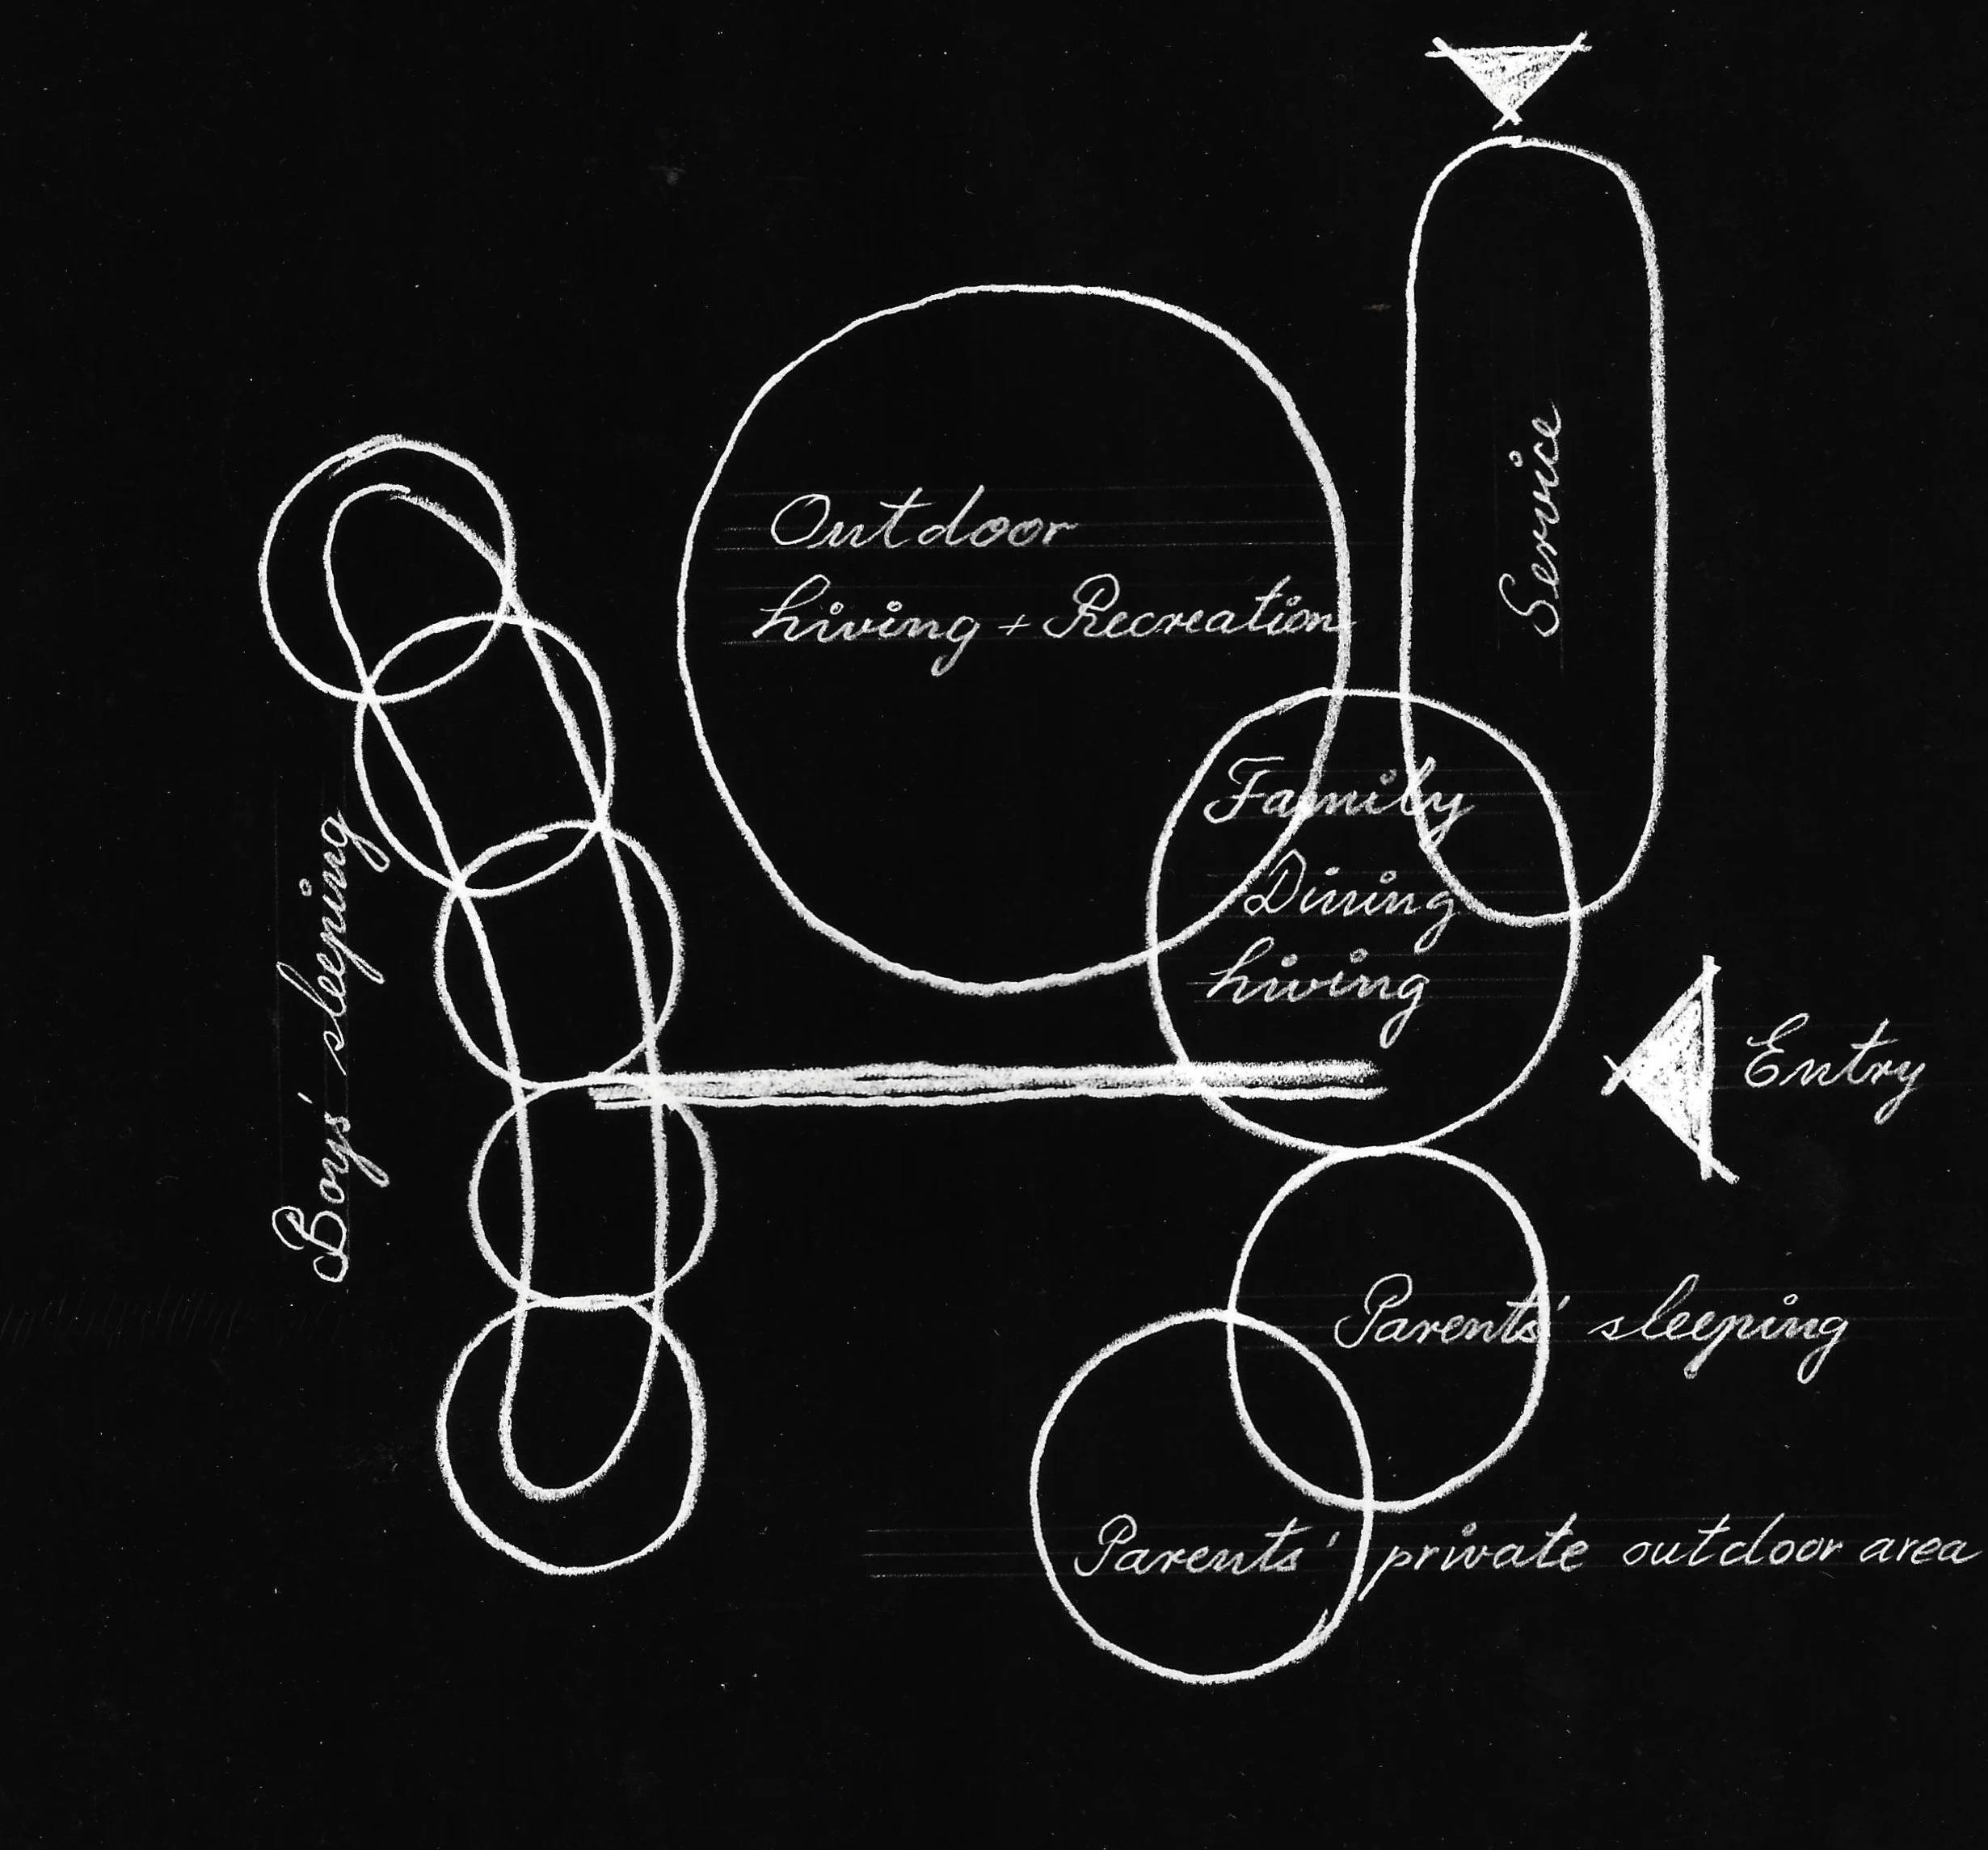 Outdoor
Living + Recreation
Service
Family
Dining
Living
Entry
Boys' sleeping
Parents' sleeping
Parents' private outdoor area